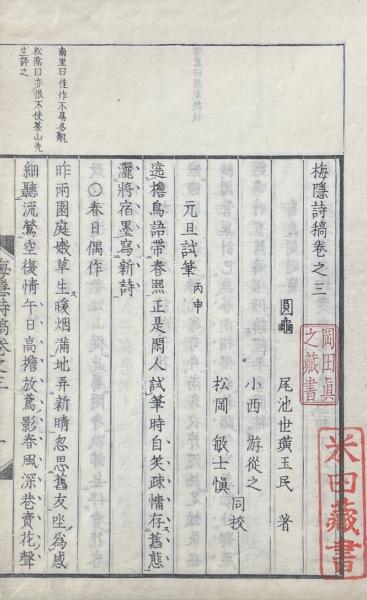 梅隱詩稿卷之三
圓龜 尾池世璜玉民 著
小西 游從之
松岡 敏士愼
同校
元旦試筆 丙申
遶檐鳥語帶春熙正是閑人試筆時自笑疎慵存舊態
灑將宿墨寫新詩
○春日偶作
昨雨園庭嫩草生暖烟滿地弄新晴忽思舊友坐爲感
細聽流鶯空復情午日高檐放鳶影春風深巷賣花聲
南里曰佳作不易多覯
松陰曰亦恨不使茶山先
生評之
岡田眞
之藏書
米田藏書
梅隱詩稿卷之三
一